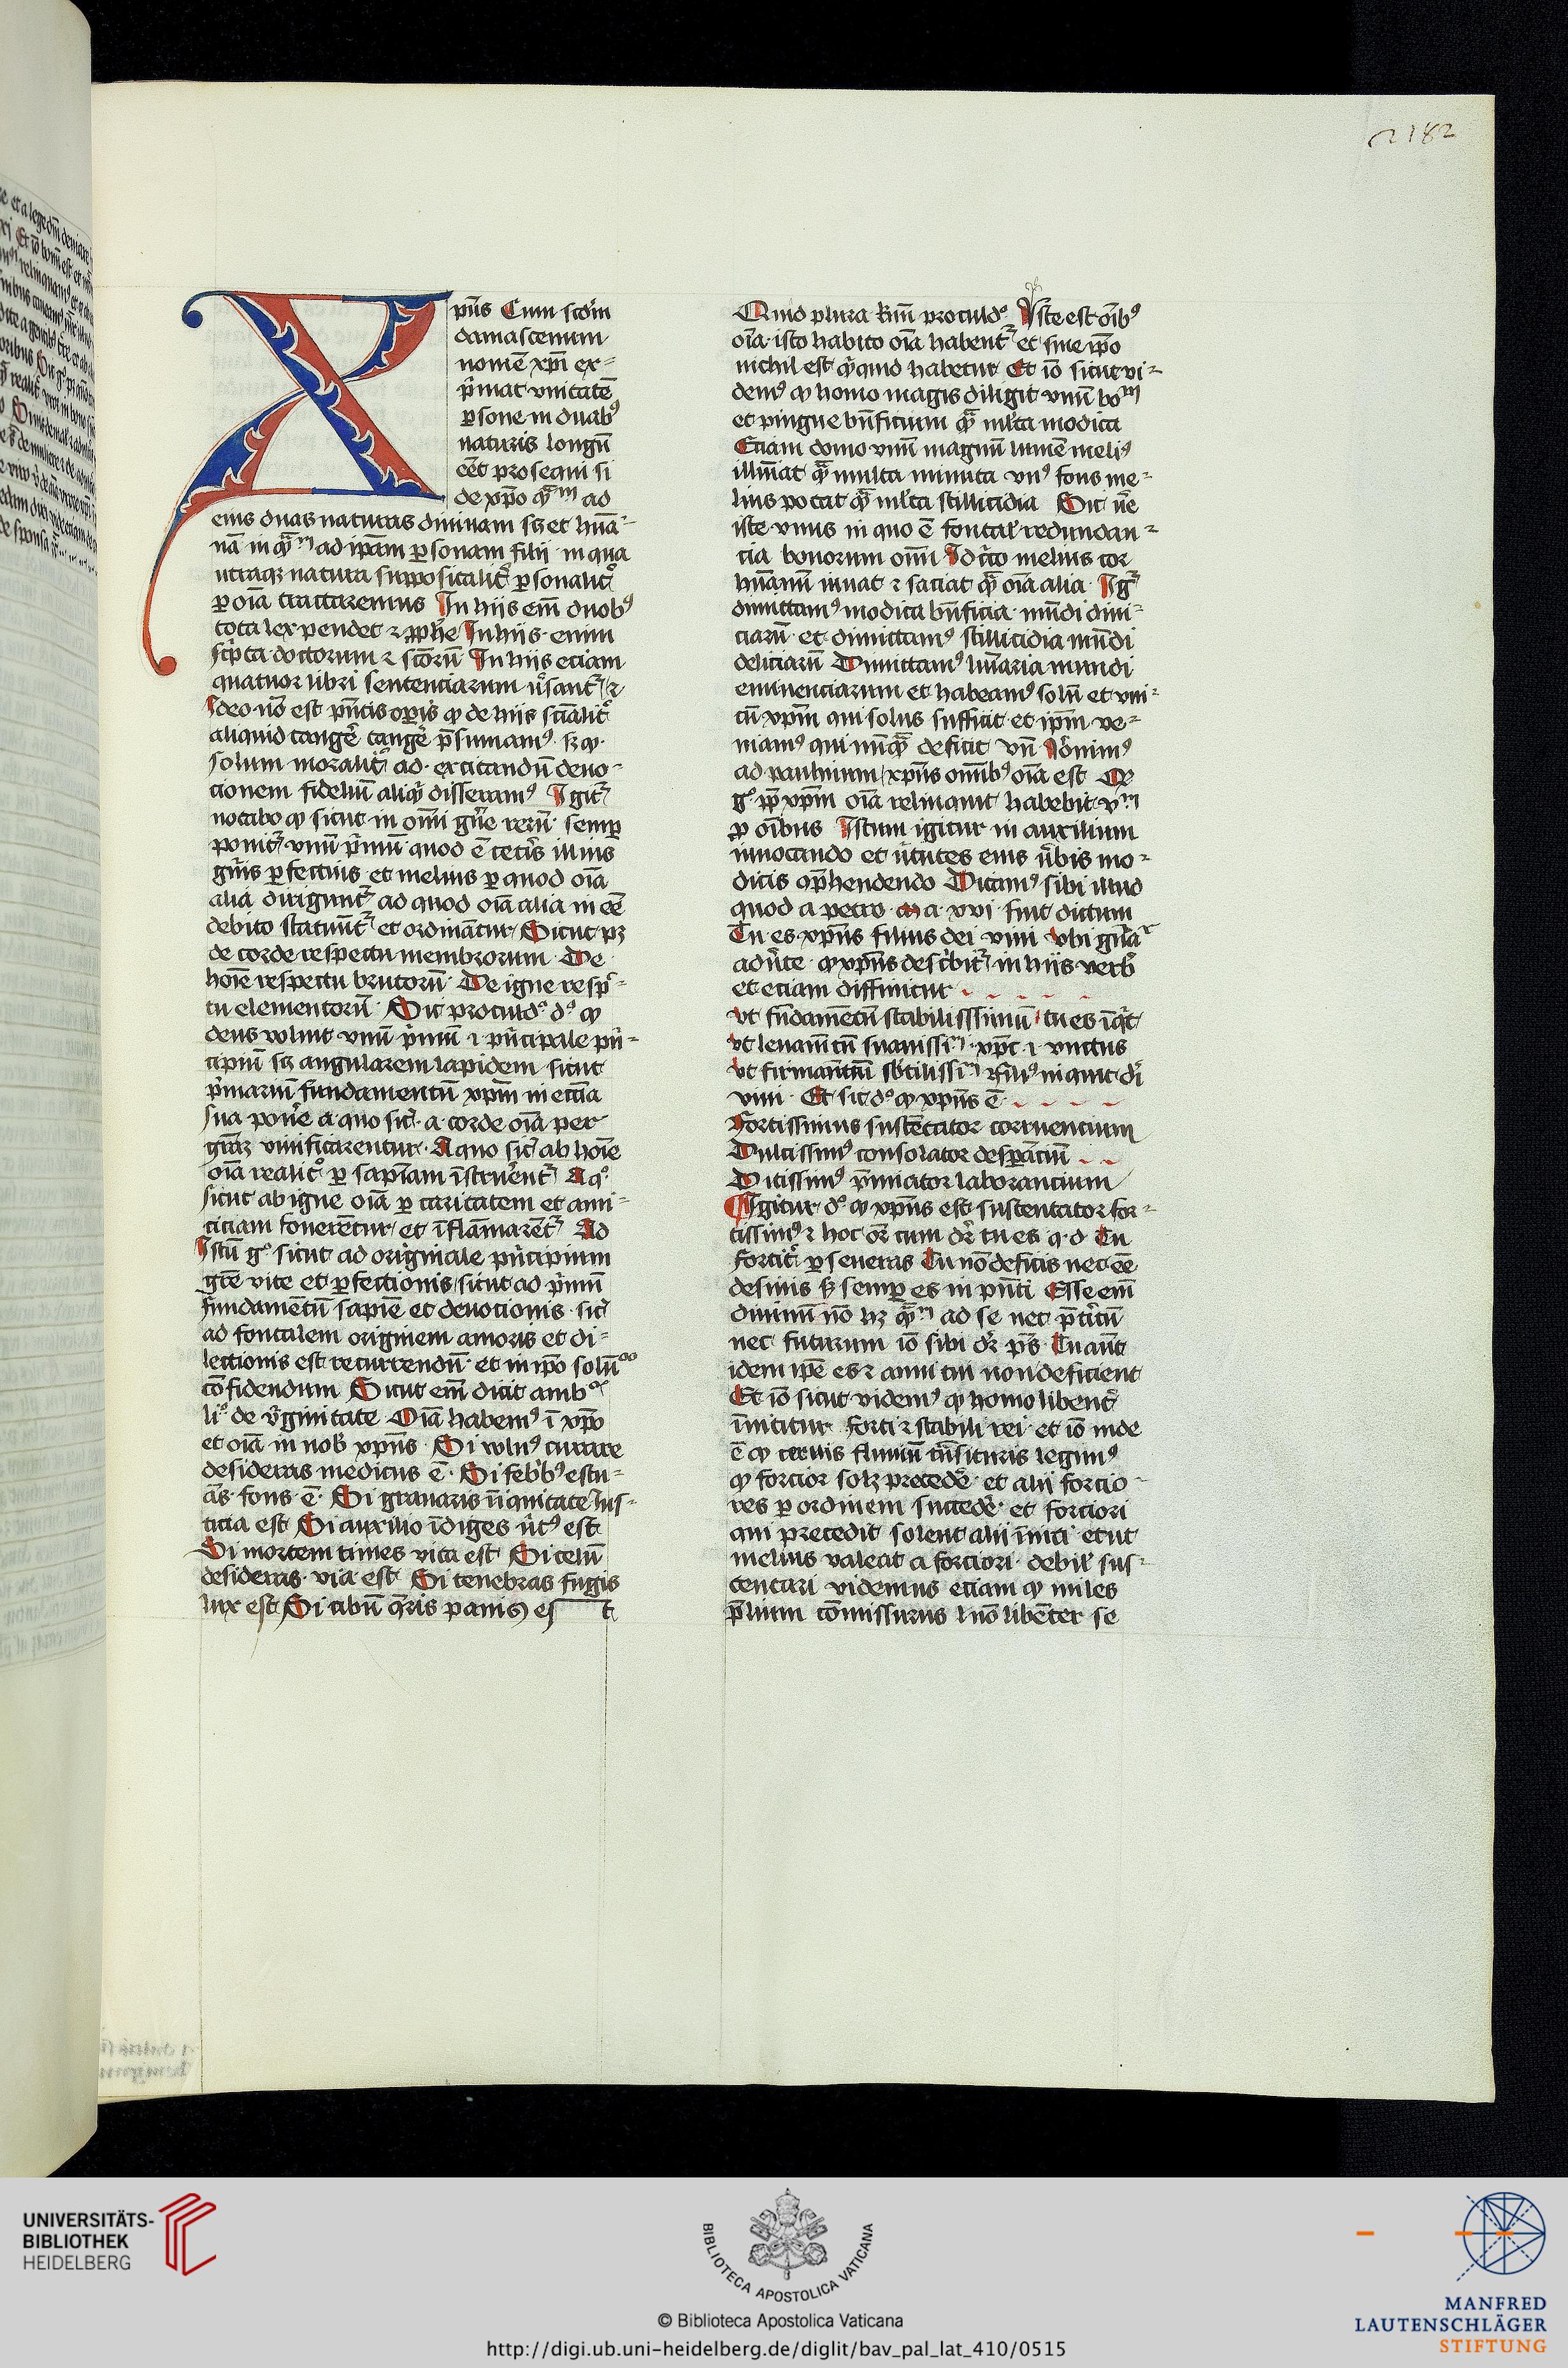 182
Xpūs Cum scdm̄
damascenum
nomē xpm̄ ex=
p̄mat vnitatē
ꝑsone in duabꝰ
naturis longū
eēt prosequi si
de xp̄o qͣꝫm ad
eius duas naturas diuinam scꝫ et hūa=
nā in qͣꝫm ad ip̄am ꝑsonam filij in qua
utraqꝫ natura supposicalit̉ ꝑsonalit̉
ꝑ oīa tractaremus In hijs em̄ duobꝰ
tota lex pendet ⁊ ꝓphē In hijs enim
sc̄pta doctorum ⁊ sc̄orū In hijs eciam
quatuor libri sentenciarum ūsant̉ ⁊
Ideo nō est pn̄tis oꝑis ꝙ de hijs scīalit̉
aliquid tanger̄ tanger̄ p̄sumamꝰ sꝫ ꝙ
solum moralit̉ ad excitandū deuo=
cionem fideliū aliq̄ disseramꝰ Igit̉
notabo ꝙ sicut in om̄i gn̄e rerū semꝑ
ponit̉ vnū p̄mū quod ē cet̄is illius
gn̄is ꝑfectius et melius ꝑ quod oīa
alia dirigunt̉ ad quod oīa alia in eē
debito statuūt̉ et ordinātur Sicut pꝫ
de corde respectu membrorum De
hoīe respectu brutorū De igne resp̄=
tu elementorū Sic proculdᵒ dᵒ ꝙ
deus voluit vnū p̄mū ⁊ pn̄cipale pn̄=
cipiū scꝫ angularem lapidem sicut
p̄mariū fundamentū xpm̄ in ecc̄ia
sua poner̄ a quo sic̄ a corde oīa per
grāꝫ viuificarentur A quo sic̄ ab hoīe
oīa realit̉ ꝑ sapīam īstruerent̉ A qᵒ
sicut ab igne oīa ꝑ caritatem et ami=
ciciam fouerētur et īflāmarēt̉ Ad
Istū gᵒ sicut ad originale pn̄cipium
grē vite et ꝑfectionis sicut ad p̄mū
fundamētū sapiē et deuotionis sic̄
ad fontalem originem amoris et di=
lectionis est recurrendū et in ip̄o solū
cōfidendum Sicut em̄ dicit amb
liᵒ de v̄ginitate Oīa habemꝰ ī xp̄o
et oīa in nob̄ xpūs Si vulnꝰ curare
desideras medicus ē Si feb̄bꝰ estu=
ās fons ē Si grauaris īiquitate ius=
ticia est Si auxilio īdiges v̄tꝰ est
Si mortem times vita est Si celū
desideras via est Si tenebras fugis
lux est Si cibū q̄ris panis est
Quid plura km̄ proculdᵒ Iste est oībꝰ
oīa isto habito oīa habent̉ et sine ip̄o
nichil est q̄cquid habetur Et iō sicut vi=
demꝰ ꝙ homo magis diligit vnū boᵐ
et pingue bn̄ficium qͣꝫ ml̄ta modica
Eciam domo vnū magnū lumē meliꝰ
illūiat qͣꝫ multa minuta vnꝰ fons me=
lius potat qͣꝫ ml̄ta stillicidia Sic nē
iste vnus in quo ē fontal̄ redundan=
cia bonorum om̄i Idcͥto melius cor
hūanū iuuat ⁊ saciat qͣꝫ oīa alia Ig̉
dimittamꝰ modica bn̄ficia mūdi diui=
ciarū et dimittamꝰ stillicidia mūdi
deliciarū Dimittamꝰ lūiaria mundi
eminenciarum et habeamꝰ solū et vni=
cū xpm̄ qui solus sufficit et ip̄m ve=
niamꝰ qui nūqͣꝫ deficit vn̄ Ieronimꝰ
ad paulinum xpūs omībꝰ oīa est Qe
gᵒ ꝓp̄ xpm̄ oīa relinquit habebit vᵐ
ꝓ oībus Istum igitur in auxilium
inuocando et v̄tutes eius v̄bis mo=
dicis cōp̄hendendo Dicamꝰ sibi illud
quod a petro Ma xvi fuit dictum
Tu es xpūs filius dei viui vbi gn̄a
aduerte ꝙ xpūs desc̄bit̉ in hijs verb̄
et eciam diffinitur
vt fūdamētū stabilissimū tu es īqͥt
vt leuam̄tū suauissiᵐ xpc̄ ⁊ vnctus
vt firmam̄tū sb̄tilissiᵐ filiꝰ inquit d̄i
viui Et sic dᵒ ꝙ xpūs ē
Fortissimus sustētator corruencium
Dulcissimꝰ consolator desꝑāciū
Ditissimꝰ p̄miator laborancium
Igitur dᵒ ꝙ xpūs est sustentator for=
tissimꝰ ⁊ hoc or̄ cum dr̄ tu es q d Tu
fortit̉ ꝑseueras Tu nō deficis nec eē
desinis sꝫ semꝑ es in pn̄ti Esse em̄
diuinū nō hꝫ qͣꝫm ad se nec p̄titū
nec futurum iō sibi dr̄ p̄s Tu aūt
idem ip̄e es ⁊ anni tui non deficient
Et iō sicut videmꝰ ꝙ homo libent̉
īnititur forti ⁊ stabili rei et iō inde
ē ꝙ ceruis fluuiū tn̄situris legimꝰ
ꝙ forcior solꝫ preceder̄ et alij forcio=
res ꝑ ordinem succeder̄ et forciori
qui precedit solent alij īniti et ut
melius valeat a forciori debil̄ sus=
tentari videmus eciam ꝙ miles
p̄lium cōmissurus l nō libēter se
UNIVERSITÄTS-
BIBLIOTHEK
HEIDELBERG
BIBLIOTECA APOSTOLICA VATICANA
© Biblioteca Apostolica Vaticana
http://digi.ub.uni-heidelberg.de/diglit/bav_pal_lat_410/0515
MANFRED
LAUTENSCHLÄGER
STIFTUNG